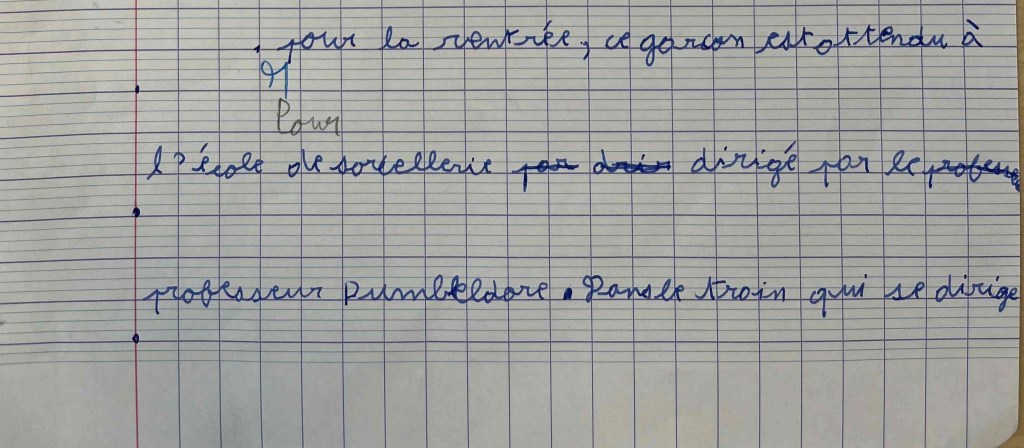 . pour la rentrée, ce garçon est attendu à
Pour
l'école de sorcellerie par dirigé par le profess
professeur Dumbeldore. Dans le train qui se dirige